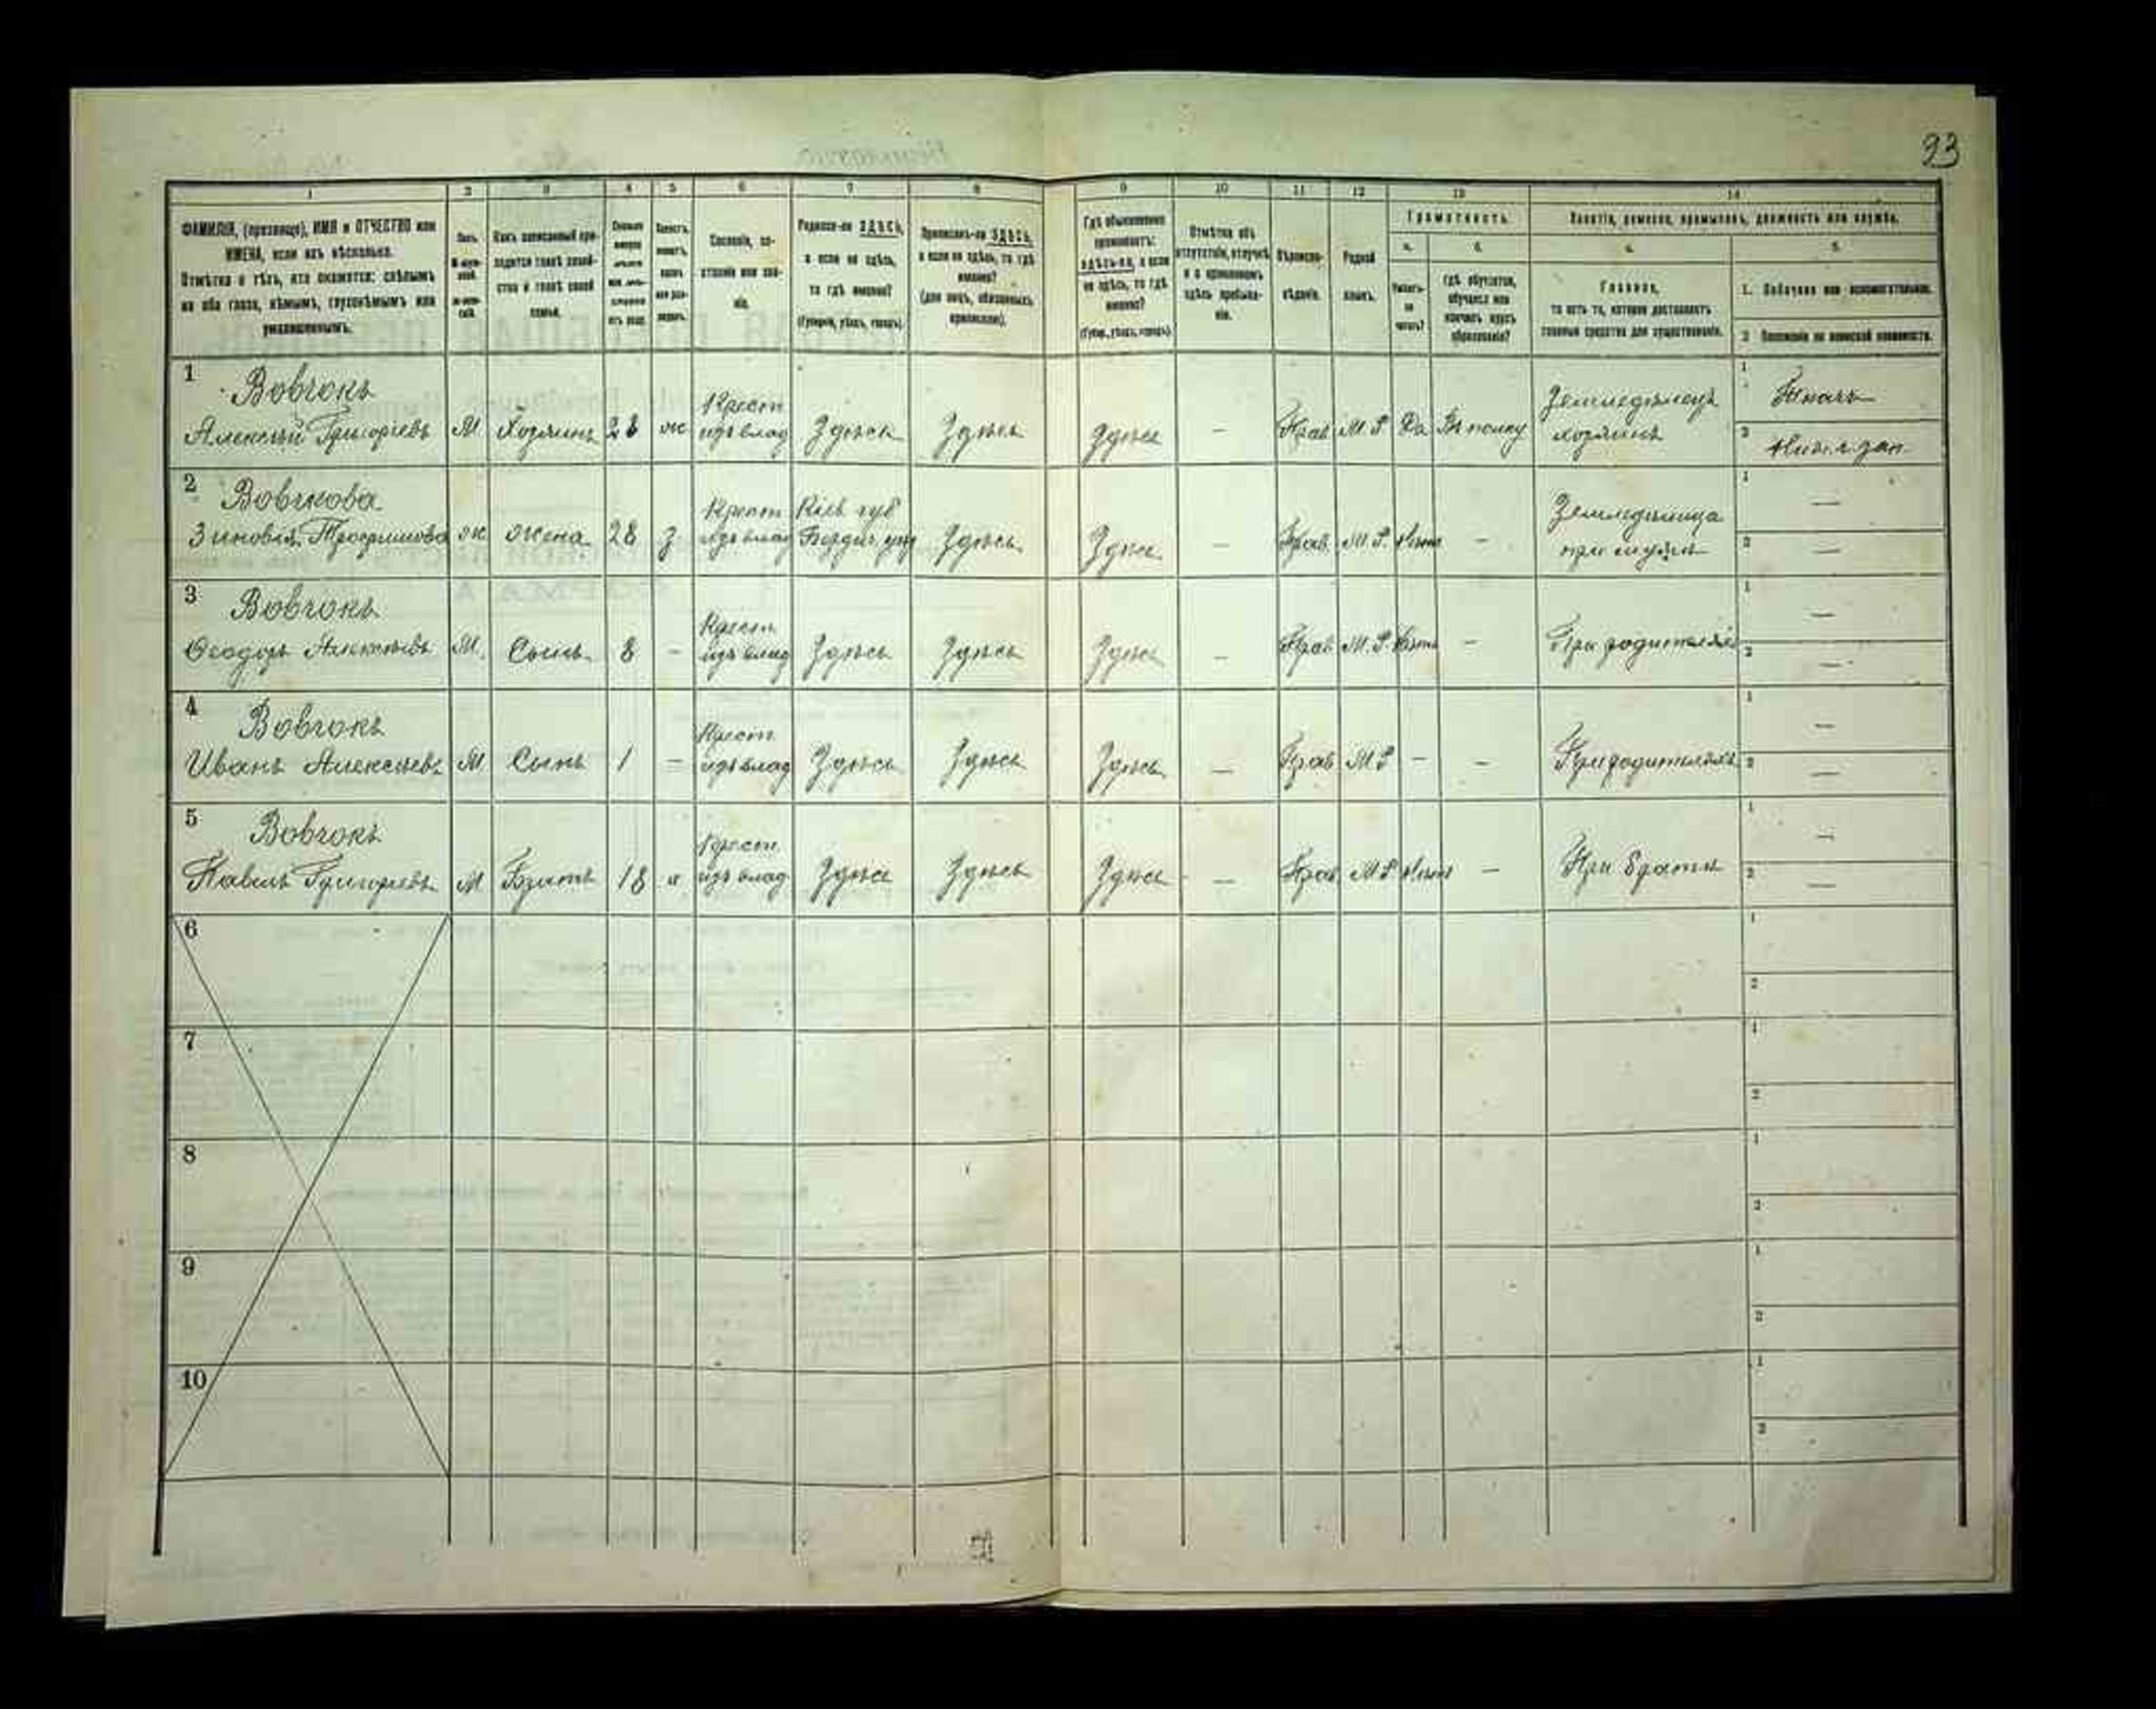 93
1 2 3 4 5 6 7 8 9 10 11 12 13 14
ФАМИЛІЯ, (прозвище), ИМЯ и ОТЧЕСТВО или
ИМЕНА, если ихъ нѣсколько.
Отмѣтка о тѣхъ, кто окажется: слѣпымъ
на оба глаза, нѣмымъ, глухонѣмымъ или
умалишеннымъ.
Полъ.
Какъ записанный при-
ходится главѣ хозяй-
ства и главѣ своей
семьи.
Сословіе, со-
стояніе или зва-
ніе.
Родился-ли ЗДѢСЬ,
а если не здѣсь,
то гдѣ именно?
(Губернія, уѣздъ, городъ).
Приписанъ-ли ЗДѢСЬ,
а если не здѣсь, то гдѣ
именно?
(для лицъ, обязанныхъ
припискою).
Гдѣ обыкновенно
проживаетъ:
здѣсь-ли, а если
не здѣсь, то гдѣ
именно?
(Губер., уѣздъ, городъ).
Отмѣтка объ
отсутствіи, отлучкѣ
и о временномъ
здѣсь пребыва-
ніи.
Вѣроиспо-
вѣданіе.
Родной
языкъ.
Грамотность.
а. б.
Умѣетъ-
ли
читать?
гдѣ обучается,
обучался или
кончилъ курсъ
образованія?
Занятіе, ремесло, промыселъ, должность или служба.
а. б.
Главное,
то есть то, которое доставляетъ
главныя средства для существованія.
1. Побочное или вспомогательное.
2 Положеніе по воинской повинности.
1 Вовчокъ Крест Земледѣлецъ 1 Ткачъ
Алексѣй Григорьевъ М Хозяинъ 28 ж изъ влад Здѣсь Здѣсь Здѣсь — Прав М.Р Да Въ полку хозяинъ 2 Ниж.ч.зап.
2 Вовчкова Крест Кіев губ Земледѣлица 1 —
Зиновія Трофимова ж жена 28 з изъ влад Бердич уѣз Здѣсь Здѣсь — Прав М.Р. Нѣтъ — при мужѣ 2 —
3 Вовчокъ Крест 1 —
Ѳеодоръ Алексѣевъ М. Сынъ 8 — изъ влад Здѣсь Здѣсь Здѣсь — Прав М.Р. Нѣтъ — При родителяхъ 2 —
4 Вовчокъ Крест 1 —
Иванъ Алексѣевъ М Сынъ 1 — изъ влад Здѣсь Здѣсь Здѣсь — Прав М Р — — При родителяхъ 2 —
5 Вовчокъ Крест 1 —
Павелъ Григорьевъ М Братъ 18 х изъ влад Здѣсь Здѣсь Здѣсь — Прав М Р Нѣтъ — При братѣ 2 —
6 1
2
7 1
2
8 1
2
9 1
2
10 1
2